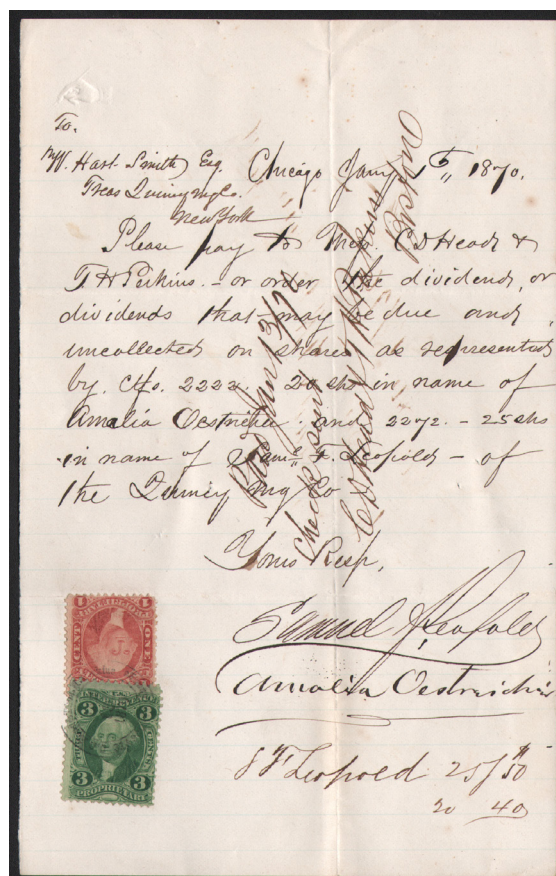 To.
Wm. Hart Smith Esq. Chicago Jany 5", 1870.
Treas Quincy Mg Co.
New York
Please pay to Mess. C D Head &
T H Perkins. - or order the dividend, or
dividends that may be due and
uncollected on shares as represented
by. Ctfs. 2222. 20 shs in name of
Amalia Oestricher. and 2272. - 25 shs
in name of Saml. F. Leopold - of
the Quincy Mg Co
Yours Resp,
Samuel F. Leopold
Amalia Oestricher
S F Leopold 25/ $50
20 40
Jan 13/70
Check sent
C D Head & T H Perkins
Boston
1 1
CENT ONE
3 3
3 3
PROPRIETARY